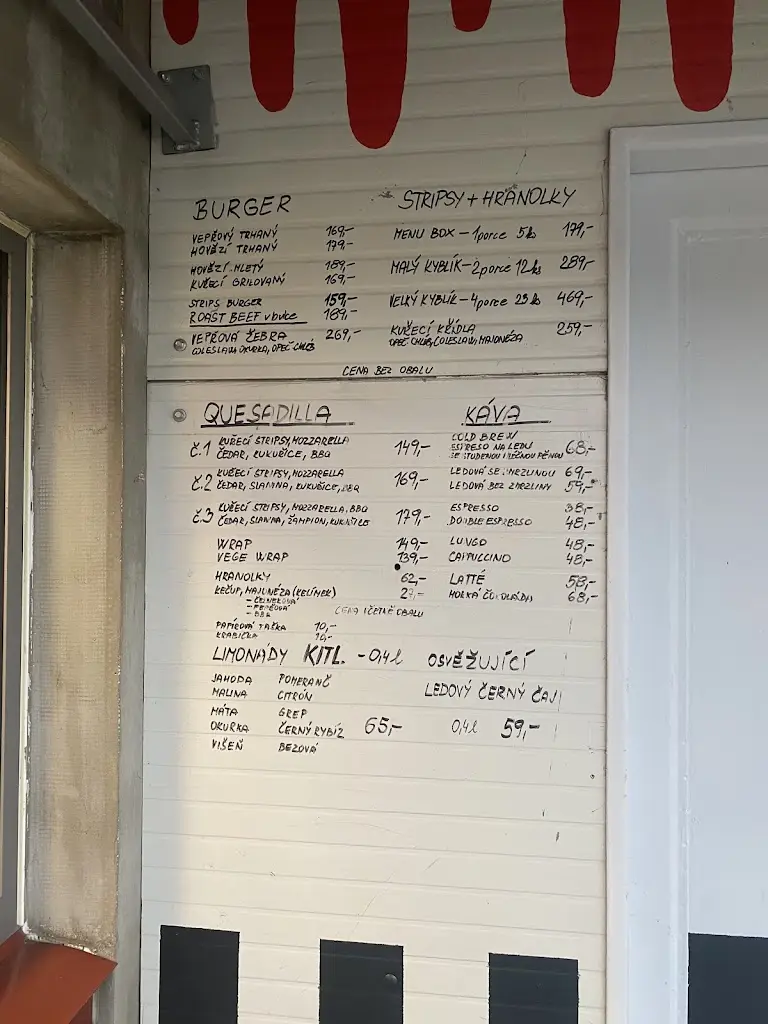 BURGER
VEPŘOVÝ TRHANÝ 169,-
HOVĚZÍ TRHANÝ 179,-
HOVĚZÍ MLETÝ 189,-
KUŘECÍ GRILOVANÝ 169,-
STRIPS BURGER 159,-
ROAST BEEF v bulce 189,-
VEPŘOVÁ ŽEBRA 269,-
COLESLAW, OKURKA, OPEČ. CHLÉB
STRIPSY + HRANOLKY
MENU BOX - 1 porce 5 ks 179,-
MALÝ KYBLÍK - 2 porce 12 ks 289,-
VELKÝ KYBLÍK - 4 porce 23 ks 469,-
KUŘECÍ KŘÍDLA 259,-
OPEČ. CHLÉB, COLESLAW, MAJONÉZA
CENA BEZ OBALU
QUESADILLA
Č.1 KUŘECÍ STRIPSY, MOZZARELLA 149,-
ČEDAR, KUKUŘICE, BBQ
Č.2 KUŘECÍ STRIPSY, MOZZARELLA 169,-
ČEDAR, SLANINA, KUKUŘICE, BBQ
Č.3 KUŘECÍ STRIPSY, MOZZARELLA, BBQ 179,-
ČEDAR, SLANINA, ŽAMPION, KUKUŘICE
WRAP 149,-
VEGE WRAP 139,-
HRANOLKY 62,-
KEČUP, MAJONÉZA (KELÍMEK)
- BBQ
CENA VČETNĚ OBALU
PAPÍROVÁ TAŠKA 10,-
KRABIČKA 10,-
KÁVA
COLD BREW
ESPRESO NA LEDU 68,-
SE STUDENOU MLÉČNOU PĚNOU
LEDOVÁ SE ZMRZLINOU 69,-
LEDOVÁ BEZ ZMRZLINY 59,-
ESPRESSO 38,-
DOUBLE ESPRESSO 48,-
LUNGO 48,-
CAPPUCCINO 48,-
LATTÉ 58,-
HORKÁ ČOKOLÁDA 68,-
LIMONÁDY KITL. - 0,4 l
JAHODA POMERANČ
MALINA CITRÓN
MÁTA GREP
OKURKA ČERNÝ RYBÍZ 65,-
VIŠEŇ BEZOVÁ
OSVĚŽUJÍCÍ
LEDOVÝ ČERNÝ ČAJ
0,4 l 59,-